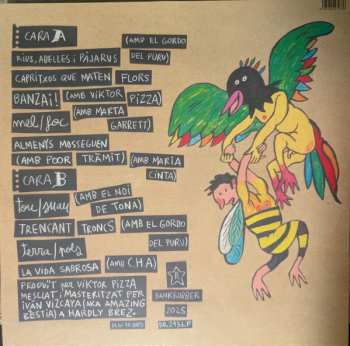 CARA A
(AMB EL GORDO
RIUS, ABELLES I PÀJARUS
DEL PURU)
CAPRITXOS QUE MATEN FLORS
BANZAI! (AMB VIKTOR PIZZA)
mel/foc (AMB MARTA
GARRETT)
ALMENYS MOSSEGUEN
(AMB POOR TRÀMIT) (AMB MARIA
CINTA)
CARA B
(AMB EL NOI
DE TONA)
tou/suau
TRENCANT TRONCS (AMB EL GORDO
DEL PURU)
terra/pols
LA VIDA SABROSA (AMB C.H.A)
PRODUÏT PER VIKTOR PIZZA
MESCLAT I MASTERITZAT PER
IVÁN VIZCAYA (AKA AMAZING
BESTIA) A HARDLY BREZ.
BANKROBBER
2025